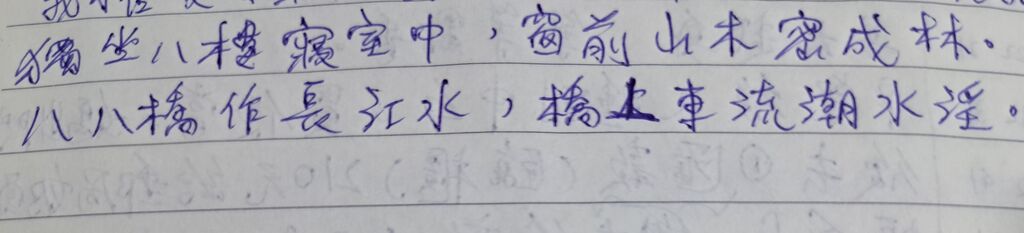 獨坐八樓寢室中，窗前山木密成林。
八八橋作長江水，橋上車流潮水淫。